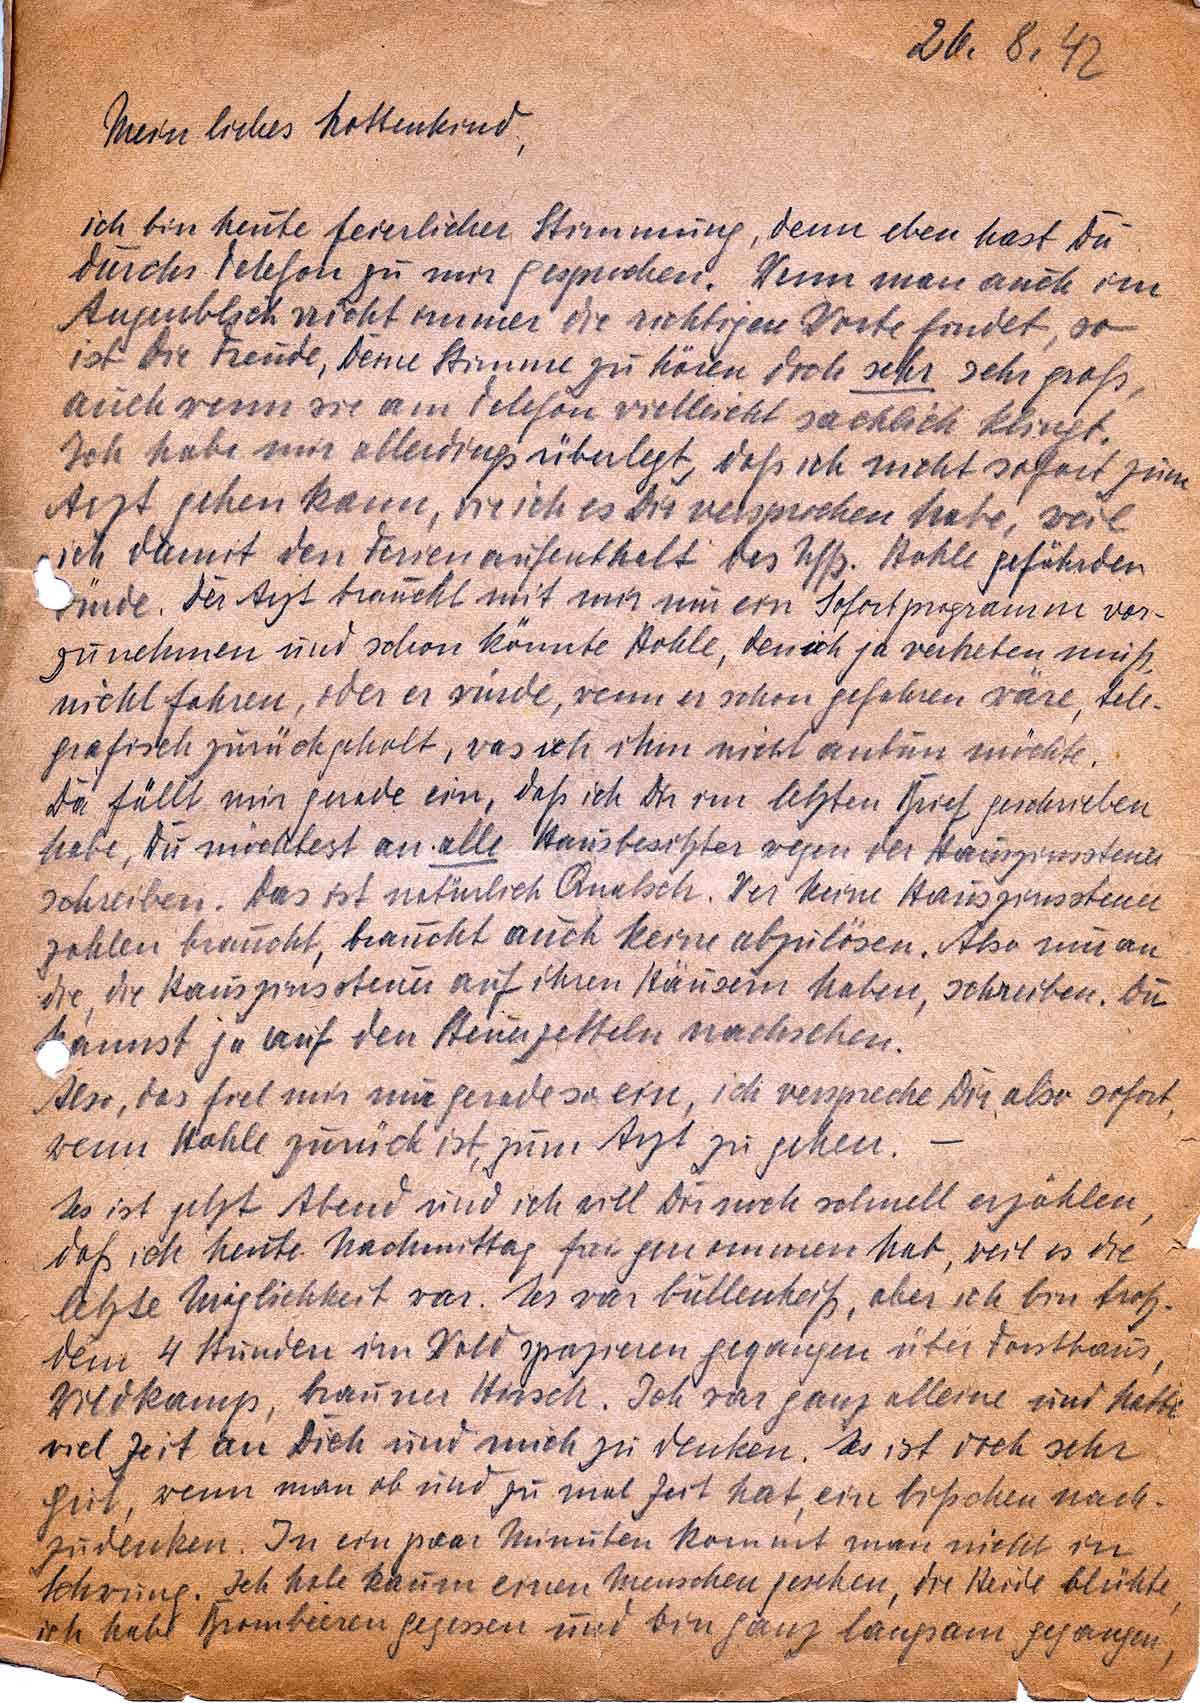 26. 8. 42
Mein liebes Hottenkind,
ich bin heute feierlicher Stimmung, denn eben hast Du
durchs Telefon zu mir gesprochen. Wenn man auch im
Augenblick nicht immer die richtigen Worte findet, so
ist die Freude, Deine Stimme zu hören doch sehr sehr groß,
auch wenn sie am Telefon vielleicht sachlich klingt.
Ich habe mir allerdings überlegt, daß ich nicht sofort zum
Arzt gehen kann, wie ich es Dir versprochen habe, weil
ich damit den Ferienaufenthalt des Uffz. Hohle gefährden
würde. Der Arzt braucht mit mir nur ein Sofortprogramm vor-
zunehmen und schon könnte Hohle, den ich ja vertreten muß,
nicht fahren, oder er würde, wenn er schon gefahren wäre, tele-
grafisch zurückgeholt, was ich ihm nicht antun möchte.
Da fällt mir gerade ein, daß ich Dir im letzten Brief geschrieben
habe, Du möchtest an alle Hausbesitzer wegen der Hauszinssteuer
schreiben. Das ist natürlich Quatsch. Wer keine Hauszinssteuer
zahlen braucht, braucht auch keine abzulösen. Also nur an
die, die Hauszinssteuer auf ihren Häusern haben, schreiben. Du
kannst ja auf den Steuerzetteln nachsehen.
Also, das fiel mir nur gerade so ein, ich verspreche Dir also sofort,
wenn Hohle zurück ist, zum Arzt zu gehen. —
Es ist jetzt Abend und ich will Dir noch schnell erzählen,
daß ich heute Nachmittag frei genommen hab, weil es die
letzte Möglichkeit war. Es war bullenheiß, aber ich bin trotz-
dem 4 Stunden im Wald spazieren gegangen über Forsthaus,
Wildkamp, brauner Hirsch. Ich war ganz alleine und hatte
viel Zeit an Dich und mich zu denken. Es ist doch sehr
gut, wenn man ab und zu mal Zeit hat, ein bißchen nach-
zudenken. In ein paar Minuten kommt man nicht in
Schwung. Ich habe kaum einen Menschen gesehen, die Heide blühte,
ich habe Brombeeren gegessen und bin ganz langsam gegangen,